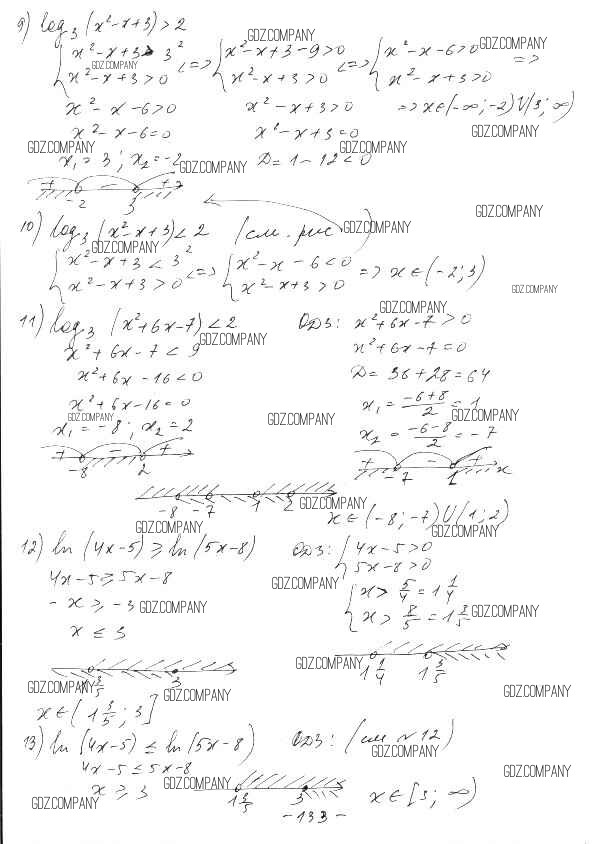 9) log₃ (x²-x+3) > 2
{ x²-x+3 > 3² <=> { x²-x+3-9>0 <=> { x²-x-6>0 =>
{ x²-x+3>0 { x²-x+3>0 { x²-x+3>0
x²-x-6>0 x²-x+3>0 => x∈(-∞;-2)U(3;∞)
x²-x-6=0 x²-x+3=0
x₁=3; x₂=-2 D=1-12<0
+ - +
-2 3
10) log₃ (x²-x+3)<2 (см. рис.)
{ x²-x+3<3² <=> { x²-x-6<0 => x∈(-2;3)
{ x²-x+3>0 { x²-x+3>0
11) log₃ (x²+6x-7)<2 ОДЗ: x²+6x-7>0
x²+6x-7<9 x²+6x-7=0
x²+6x-16<0 D=36+28=64
x²+6x-16=0 x₁=(-6+8)/2=1
x₁=-8; x₂=2 x₂=(-6-8)/2=-7
+ - + + - +
-8 2 -7 1 x
-8 -7 1 2
x∈(-8;-7)U(1;2)
12) ln (4x-5) ≥ ln (5x-8) ОДЗ: { 4x-5>0
{ 5x-8>0
4x-5≥5x-8 { x>5/4=1 1/4
-x≥-3 { x>8/5=1 3/5
x≤3
1 3/5 3 1 1/4 1 3/5
x∈(1 3/5; 3]
13) ln (4x-5) ≤ ln (5x-8) ОДЗ: (см №12)
4x-5≤5x-8
x≥3
1 3/5 3 x∈[3;∞)
-133-
GDZ.COMPANY